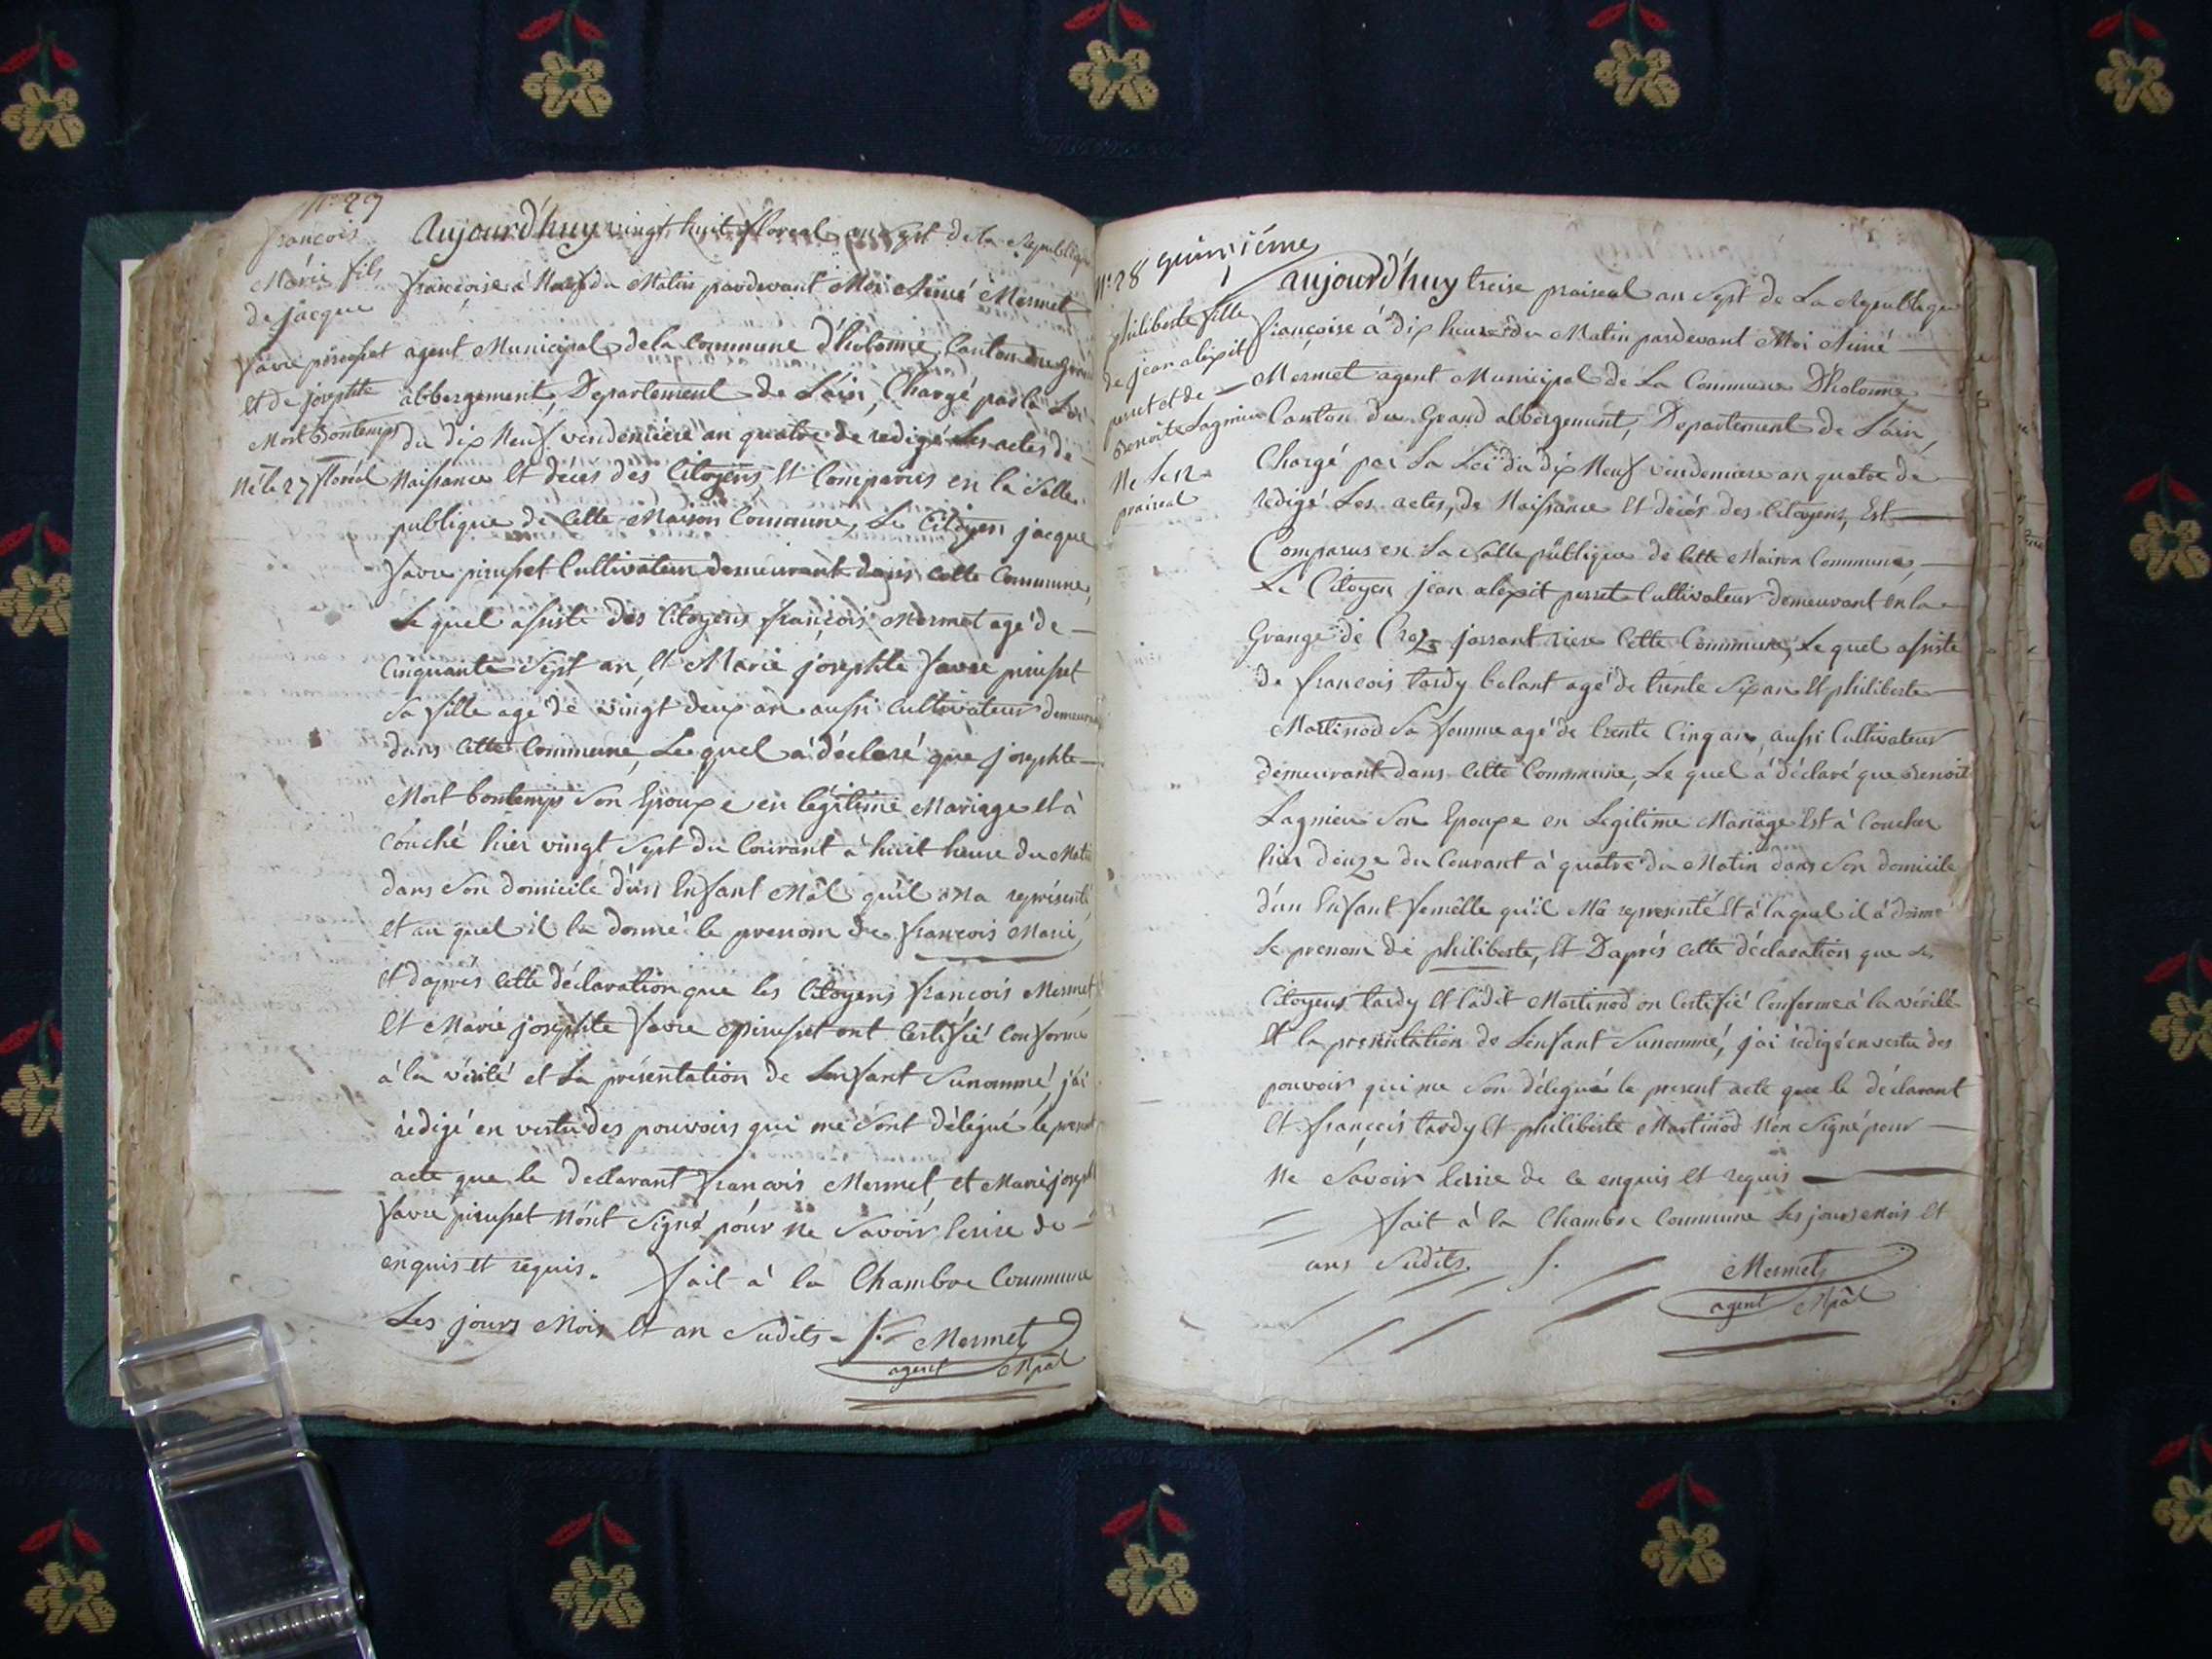 N° 27
françois
Marie fils
de jacque
favre pirusset
et de josephte
Mort bontemps
Né le 27 floréal
Aujourd'huy vingt huit floreal an sept de la Republique
francoise à Neuf du Matin pardevant Moi Aimé Mermet
agent Municipal de la Commune d'hotonne, Canton du grand
abbergement, Departement de L'ain, Chargé par la Loi
du dix Neuf vendemiere an quatre de redigé Les actes de
Naissance Et décés des Citoyens, Et Comparus en la Salle
publique de Cette Maison Commune, Le Citoyen jacque
favre pirusset Cultivateur demeurant dans cette Commune,
Le quel assisté des Citoyens françois Mermet agé de
Cinquante Sept an, Et Marie josephte favre pirusset
Sa fille agé de vingt deux an aussi Cultivateur demeurant
dans Cette Commune, Le quel à déclaré que josephte
Mort bontemps Son Epouxe en légitime Mariage Et à
Couché hier vingt Sept du Courant à huit heure du Matin
dans Son domicile d'un Enfant Mâl qu'il Ma représenté
Et au quel il la donné le prenom de françois Marie,
Et daprés Cette déclaration que les Citoyens françois Mermet
Et Marie josephte favre pirusset ont Certifié Conforme
à la vérité et La présentation de Lenfant Sunommé, j'ai
rédigé en vertu des pouvoirs qui me Sont délégué le present
acte que le declarant françois Mermet et Marie josephte
favre pirusset N'ont Signé pour Ne Savoir Ecrire de
enquis Et requis. fait à la Chambre Commune
Les jours Mois Et an Sudits
Mermet
agent Mpâl
N° 28 quinzième
philiberte fille
de jean alexit
perret et de
Benoite Lagnieu
Ne Le 12
praireal
aujourd'huy treise praireal an Sept de La Republique
françoise à dix heure du Matin pardevant Moi Aimé
Mermet agent Municipal de La Commune D'hotonne,
Canton du Grand abbergement, Departement de L'ain,
Chargé par La Loi du dix Neuf vendemiere an quatre de
redigé Les actes, de Naissance Et décés des Citoyens, Est
Comparus en La Salle publique de Cette Maison Commune,
Le Citoyen jean alexit perret Cultivateur demeurant en la
Grange de riere Cette Commune, Le quel assisté
de francois tardy belant agé de trente Six an Et philiberte
Martinod Sa femme agé de trente Cinq an, aussi Cultivateur
demeurant dans Cette Commune, Le quel à déclaré que Benoite
Lagnieu Son Epouxe en Legitime Mariage Est à Coucher
hier douze du Courant à quatre du Matin dans Son domicile
d'un Enfant femêlle qu'il Mâ representé Et à laquel il à donné
Le prenom de philiberte, Et D'aprés Cette déclaration que Les
Citoyens tardy Et ladit Martinod on Certifié Conforme à la vérité
Et la presentation de Lenfant Sunommé, j'ai rédigé en vertu des
pouvoir qui me Son délegué le present acte que le déclarant
Et françois tardy Et philiberte Martinod Non Signé pour
Ne Savoir Ecrire de Ce enquis Et requis
fait à la Chambre Commune Les jours mois Et
ans Sudits.
Mermet
agent Mpâl